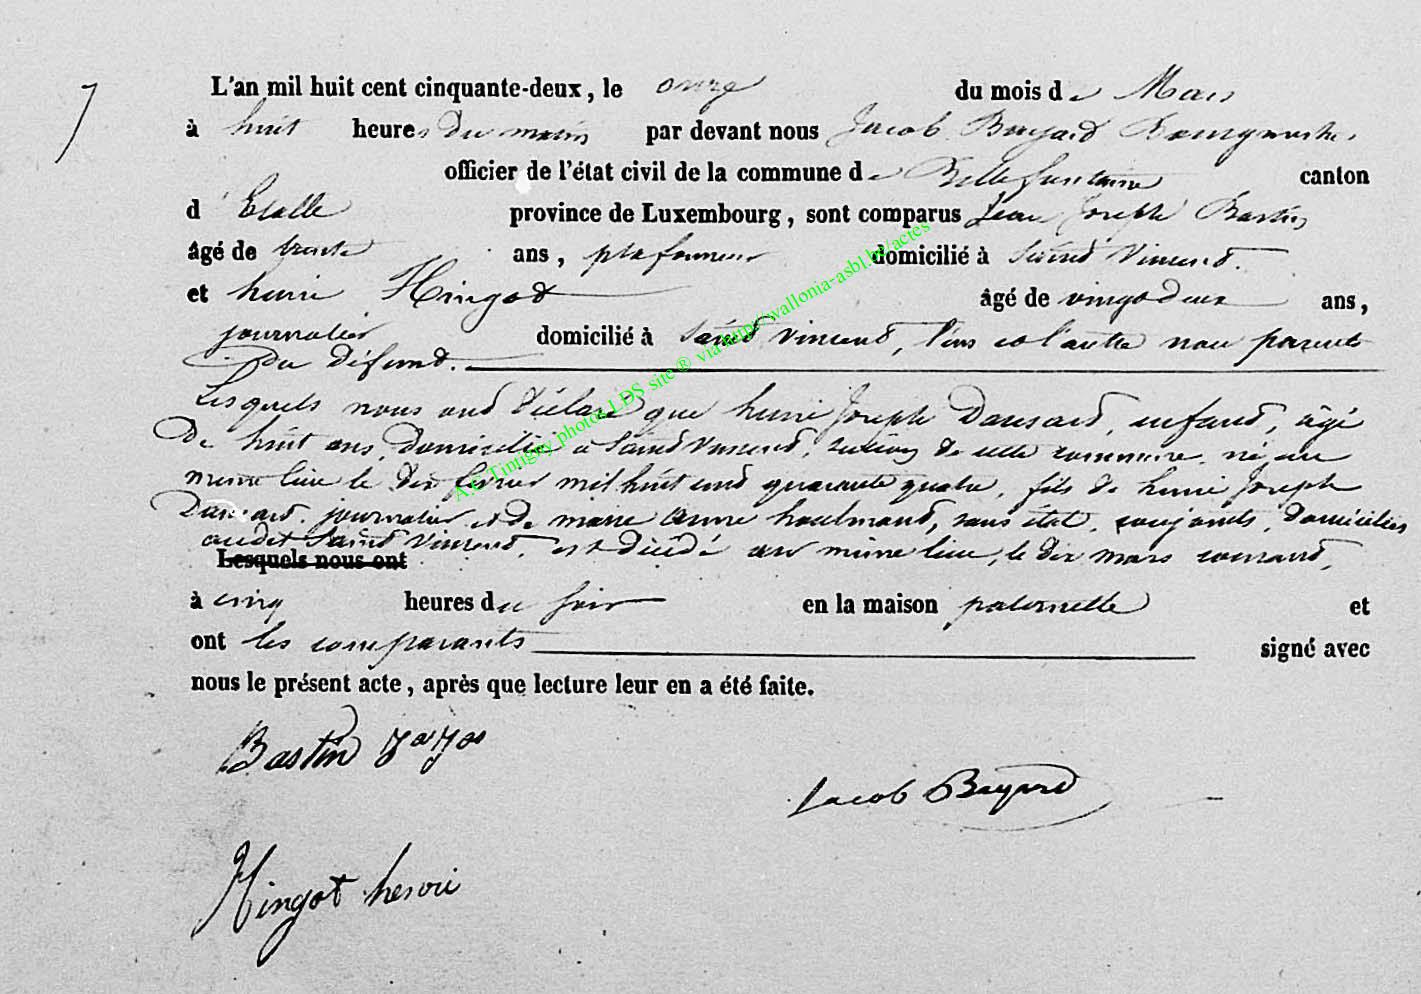 7
L'an mil huit cent cinquante-deux, le onze du mois de Mars
à huit heures du matin par devant nous Jacob Bayard Bourgmestre,
officier de l'état civil de la commune de Bellefontaine canton
d'Etalle province de Luxembourg, sont comparus Jean Joseph Bastin
âgé de trente ans, plafonneur domicilié à Saind Vincend.
et henri Hingot âgé de vingt deux ans,
journalier domicilié à Saind Vincend, l'un et l'autre non parents
du défunt.
Lesquels nous ond déclaré que henri Joseph Dansard, enfand, âgé
de huit ans, domicilié à Saind Vincend, section de cette commune, né au
même lieu le dix février mil huit cend quarante quatre, fils de henri Joseph
Dansard, journalier et de marie anne, sans état, conjoints, domiciliés
audit Saind Vincend, est décédé au même lieu, le dix mars courand,
Lesquels nous ont
à cinq heures du soir en la maison paternelle et
ont les comparants signé avec
nous le présent acte, après que lecture leur en a été faite.
Bastin
Jacob Bayard
Hingot henri
A.E. Tintigny photos LDS site ® via http://wallonia-asbl.be/actes